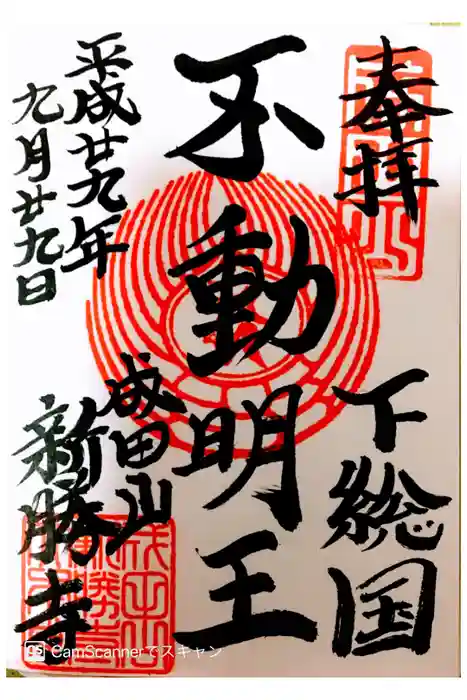 奉拝
下総国
不動明王
平成廿九年
九月廿九日
成田山
新勝寺
CS CamScannerでスキャン